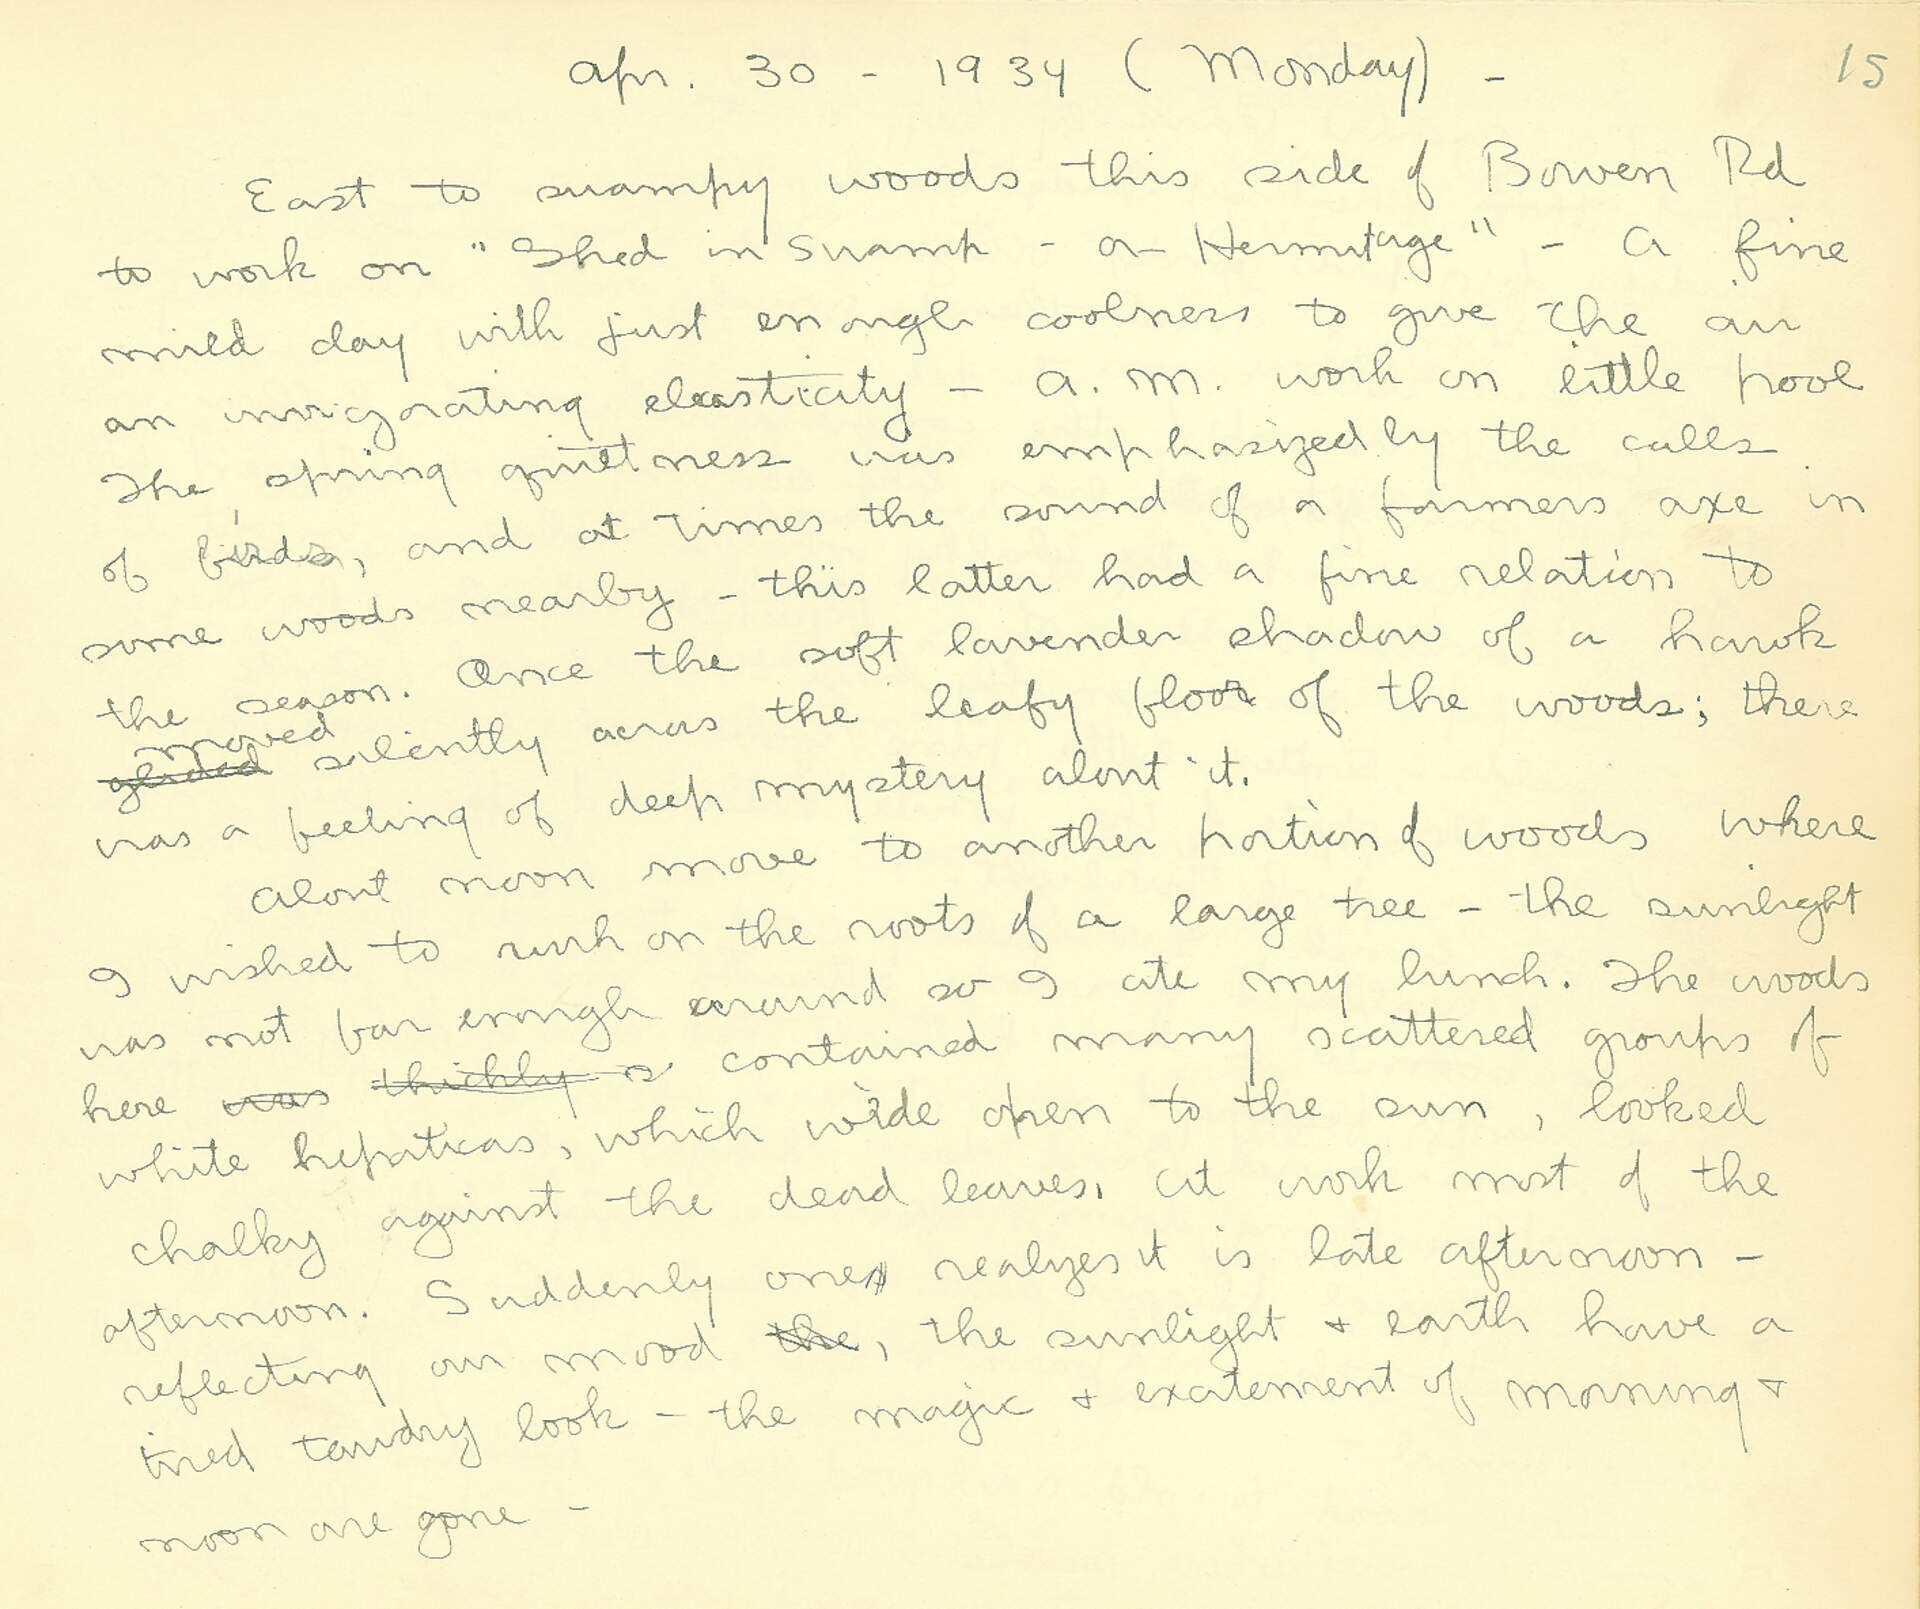 Apr. 30 - 1934 (Monday) - 15
East to swampy woods this side of Bowen Rd
to work on "Shed in Swamp - or Hermitage" - A fine
mild day with just enough coolness to give the air
an invigorating elasticity - A.M. work on little pool
The spring quietness was emphasized by the calls
of birds, and at times the sound of a farmers axe in
some woods nearby - this latter had a fine relation to
the season. Once the soft lavender shadow of a hawk
moved
glided silently across the leafy floor of the woods; there
was a feeling of deep mystery about it.
About noon move to another portion of woods where
I wished to work on the roots of a large tree - the sunlight
was not far enough around so I ate my lunch. The woods
here was thickly is contained many scattered groups of
white hepaticas, which wide open to the sun, looked
chalky against the dead leaves. At work most of the
afternoon. Suddenly one realizes it is late afternoon -
reflecting our mood the, the sunlight + earth have a
tired tawdry look - the magic + excitement of morning +
noon are gone -